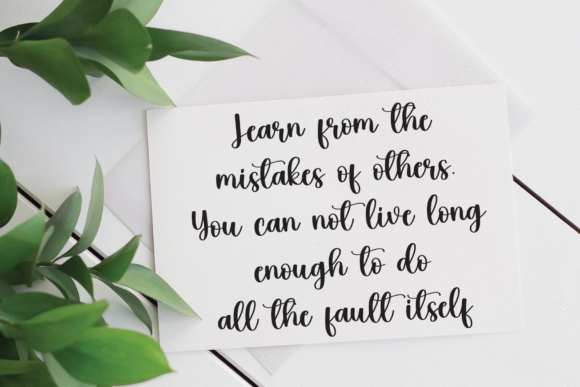 Learn from the
mistakes of others.
You can not live long
enough to do
all the fault itself